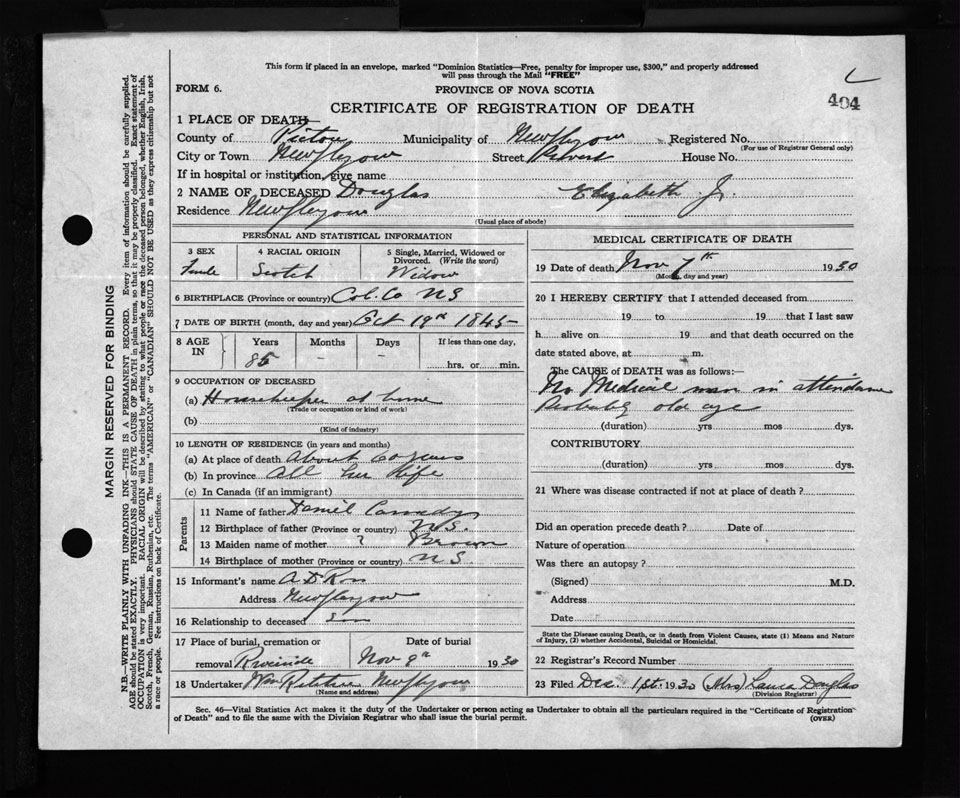 This form if placed in an envelope, marked "Dominion Statistics—Free, penalty for improper use, $300," and properly addressed
will pass through the Mail "FREE"
FORM 6.
PROVINCE OF NOVA SCOTIA
404
CERTIFICATE OF REGISTRATION OF DEATH
1 PLACE OF DEATH—
County of Pictou Municipality of New Glasgow Registered No.
(For use of Registrar General only)
City or Town New Glasgow Street House No.
If in hospital or institution, give name
2 NAME OF DECEASED Douglas Elizabeth J.
Residence New Glasgow
(Usual place of abode)
PERSONAL AND STATISTICAL INFORMATION
3 SEX 4 RACIAL ORIGIN 5 Single, Married, Widowed or
Divorced. (Write the word)
Female Scotch Widow
6 BIRTHPLACE (Province or country) Col. Co NS
7 DATE OF BIRTH (month, day and year) Oct 19th 1845
8 AGE IN Years Months Days If less than one day,
85 - - hrs. or min.
9 OCCUPATION OF DECEASED
(a) Housekeeper at home
(Trade or occupation or kind of work)
(b)
(Kind of industry)
10 LENGTH OF RESIDENCE (in years and months)
(a) At place of death About 60 years
(b) In province All her life
(c) In Canada (if an immigrant)
Parents
11 Name of father Daniel
12 Birthplace of father (Province or country) N.S.
13 Maiden name of mother ? Brown
14 Birthplace of mother (Province or country) N S
15 Informant's name A. D. Ross
Address New Glasgow
16 Relationship to deceased Son
17 Place of burial, cremation or Date of burial
removal Riverside Nov 9th 1930
18 Undertaker Wm Ritchie New Glasgow
(Name and address)
MEDICAL CERTIFICATE OF DEATH
19 Date of death Nov 7th 1930
(Month, day and year)
20 I HEREBY CERTIFY that I attended deceased from
19 to 19 that I last saw
h alive on 19 and that death occurred on the
date stated above, at m.
The CAUSE of DEATH was as follows:—
No Medical man in attendance
Probably old age
(duration) yrs mos dys.
CONTRIBUTORY
(duration) yrs mos dys.
21 Where was disease contracted if not at place of death?
Did an operation precede death? Date of
Nature of operation
Was there an autopsy?
(Signed) M.D.
Address
Date
State the Disease causing Death, or in death from Violent Causes, state (1) Means and Nature
of Injury, (2) whether Accidental, Suicidal or Homicidal.
22 Registrar's Record Number
23 Filed Dec 1st 1930 (Mrs) Laura Douglas
(Division Registrar)
Sec. 46—Vital Statistics Act makes it the duty of the Undertaker or person acting as Undertaker to obtain all the particulars required in the "Certificate of Registration
of Death" and to file the same with the Division Registrar who shall issue the burial permit.
(OVER)
MARGIN RESERVED FOR BINDING
N.B.—WRITE PLAINLY WITH UNFADING INK—THIS IS A PERMANENT RECORD. Every item of information should be carefully supplied.
AGE should be stated EXACTLY. PHYSICIANS should STATE CAUSE OF DEATH in plain terms, so that it may be properly classified. Exact statement of
OCCUPATION is very important. RACIAL ORIGIN will be described by stating to what people or race the deceased person belonged, whether English, Irish,
Scotch, French, German, Russian, Ruthenian, etc. The terms "AMERICAN" or "CANADIAN" SHOULD NOT BE USED as they express citizenship but not
a race or people. See instructions on back of Certificate.